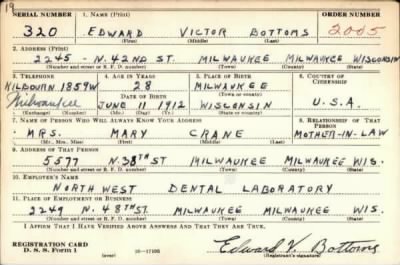 19
SERIAL NUMBER 1. NAME (Print) ORDER NUMBER
320 EDWARD VICTOR BOTTOMS 2005
(First) (Middle) (Last)
2. ADDRESS (Print)
2245 - N. 42ND ST. MILWAUKEE MILWAUKEE WISCONSIN
(Number and street or R. F. D. number) (Town) (County) (State)
3. TELEPHONE 4. AGE IN YEARS 5. PLACE OF BIRTH 6. COUNTRY OF CITIZENSHIP
KILBOURN 1859W 28 MILWAUKEE
Milwaukee DATE OF BIRTH (Town or county)
JUNE 11 1912 WISCONSIN U.S.A.
(Exchange) (Number) (Mo.) (Day) (Yr.) (State or country)
7. NAME OF PERSON WHO WILL ALWAYS KNOW YOUR ADDRESS 8. RELATIONSHIP OF THAT PERSON
MRS. MARY CRANE MOTHER-IN-LAW
(Mr., Mrs., Miss) (First) (Middle) (Last)
9. ADDRESS OF THAT PERSON
5577 N. 38TH ST MILWAUKEE MILWAUKEE WIS.
(Number and street or R. F. D. number) (Town) (County) (State)
10. EMPLOYER'S NAME
NORTH WEST DENTAL LABORATORY
11. PLACE OF EMPLOYMENT OR BUSINESS
2249 N. 48TH ST. MILWAUKEE MILWAUKEE WIS.
(Number and street or R. F. D. number) (Town) (County) (State)
I AFFIRM THAT I HAVE VERIFIED ABOVE ANSWERS AND THAT THEY ARE TRUE.
REGISTRATION CARD
D. S. S. Form 1 (over) 16-17105 Edward V. Bottoms
(Registrant's signature)